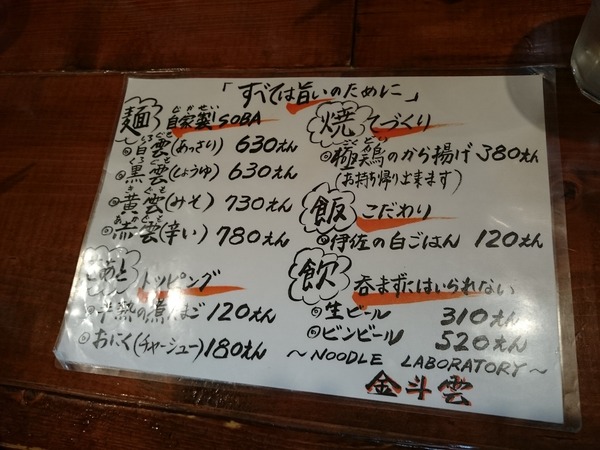 「すべては旨いのために」
麺 自家製SOBA
じかせい
白雲(あっさり) 630えん
しろぐも
黒雲(しょうゆ) 630えん
くろぐも
黄雲(みそ) 730えん
きぐも
赤雲(辛い) 780えん
あかぐも
あと トッピング
半熟の煮たまご 120えん
おにく(チャーシュー) 180えん
焼 てづくり
鶏のから揚げ 380えん
(お持ち帰り出来ます)
飯 こだわり
伊佐の白ごはん 120えん
飲 呑まずにはいられない
生ビール 310えん
ビンビール 520えん
～NOODLE LABORATORY～
金斗雲